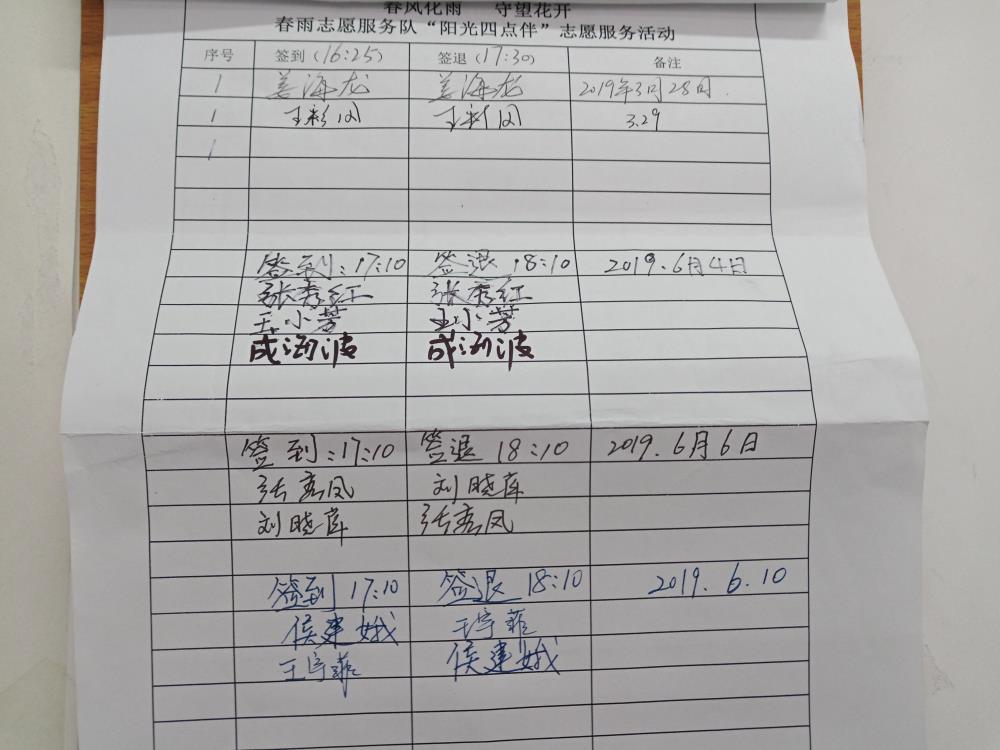 春风化雨 守望花开
春雨志愿服务队“阳光四点伴”志愿服务活动
序号 签到(16:25) 签退(17:30) 备注
1 姜海龙 姜海龙 2019年3月28日
1 王彩闪 王彩闪 3.29
1
签到:17:10 签退 18:10 2019.6月4日
张秀红 张秀红
王小芳 王小芳
成海波 成海波
签到:17:10 签退 18:10 2019.6月6日
张秀凤 刘晓库
刘晓库 张秀凤
签到 17:10 签退 18:10 2019.6.10
侯建娥 王宇菲
王宇菲 侯建娥